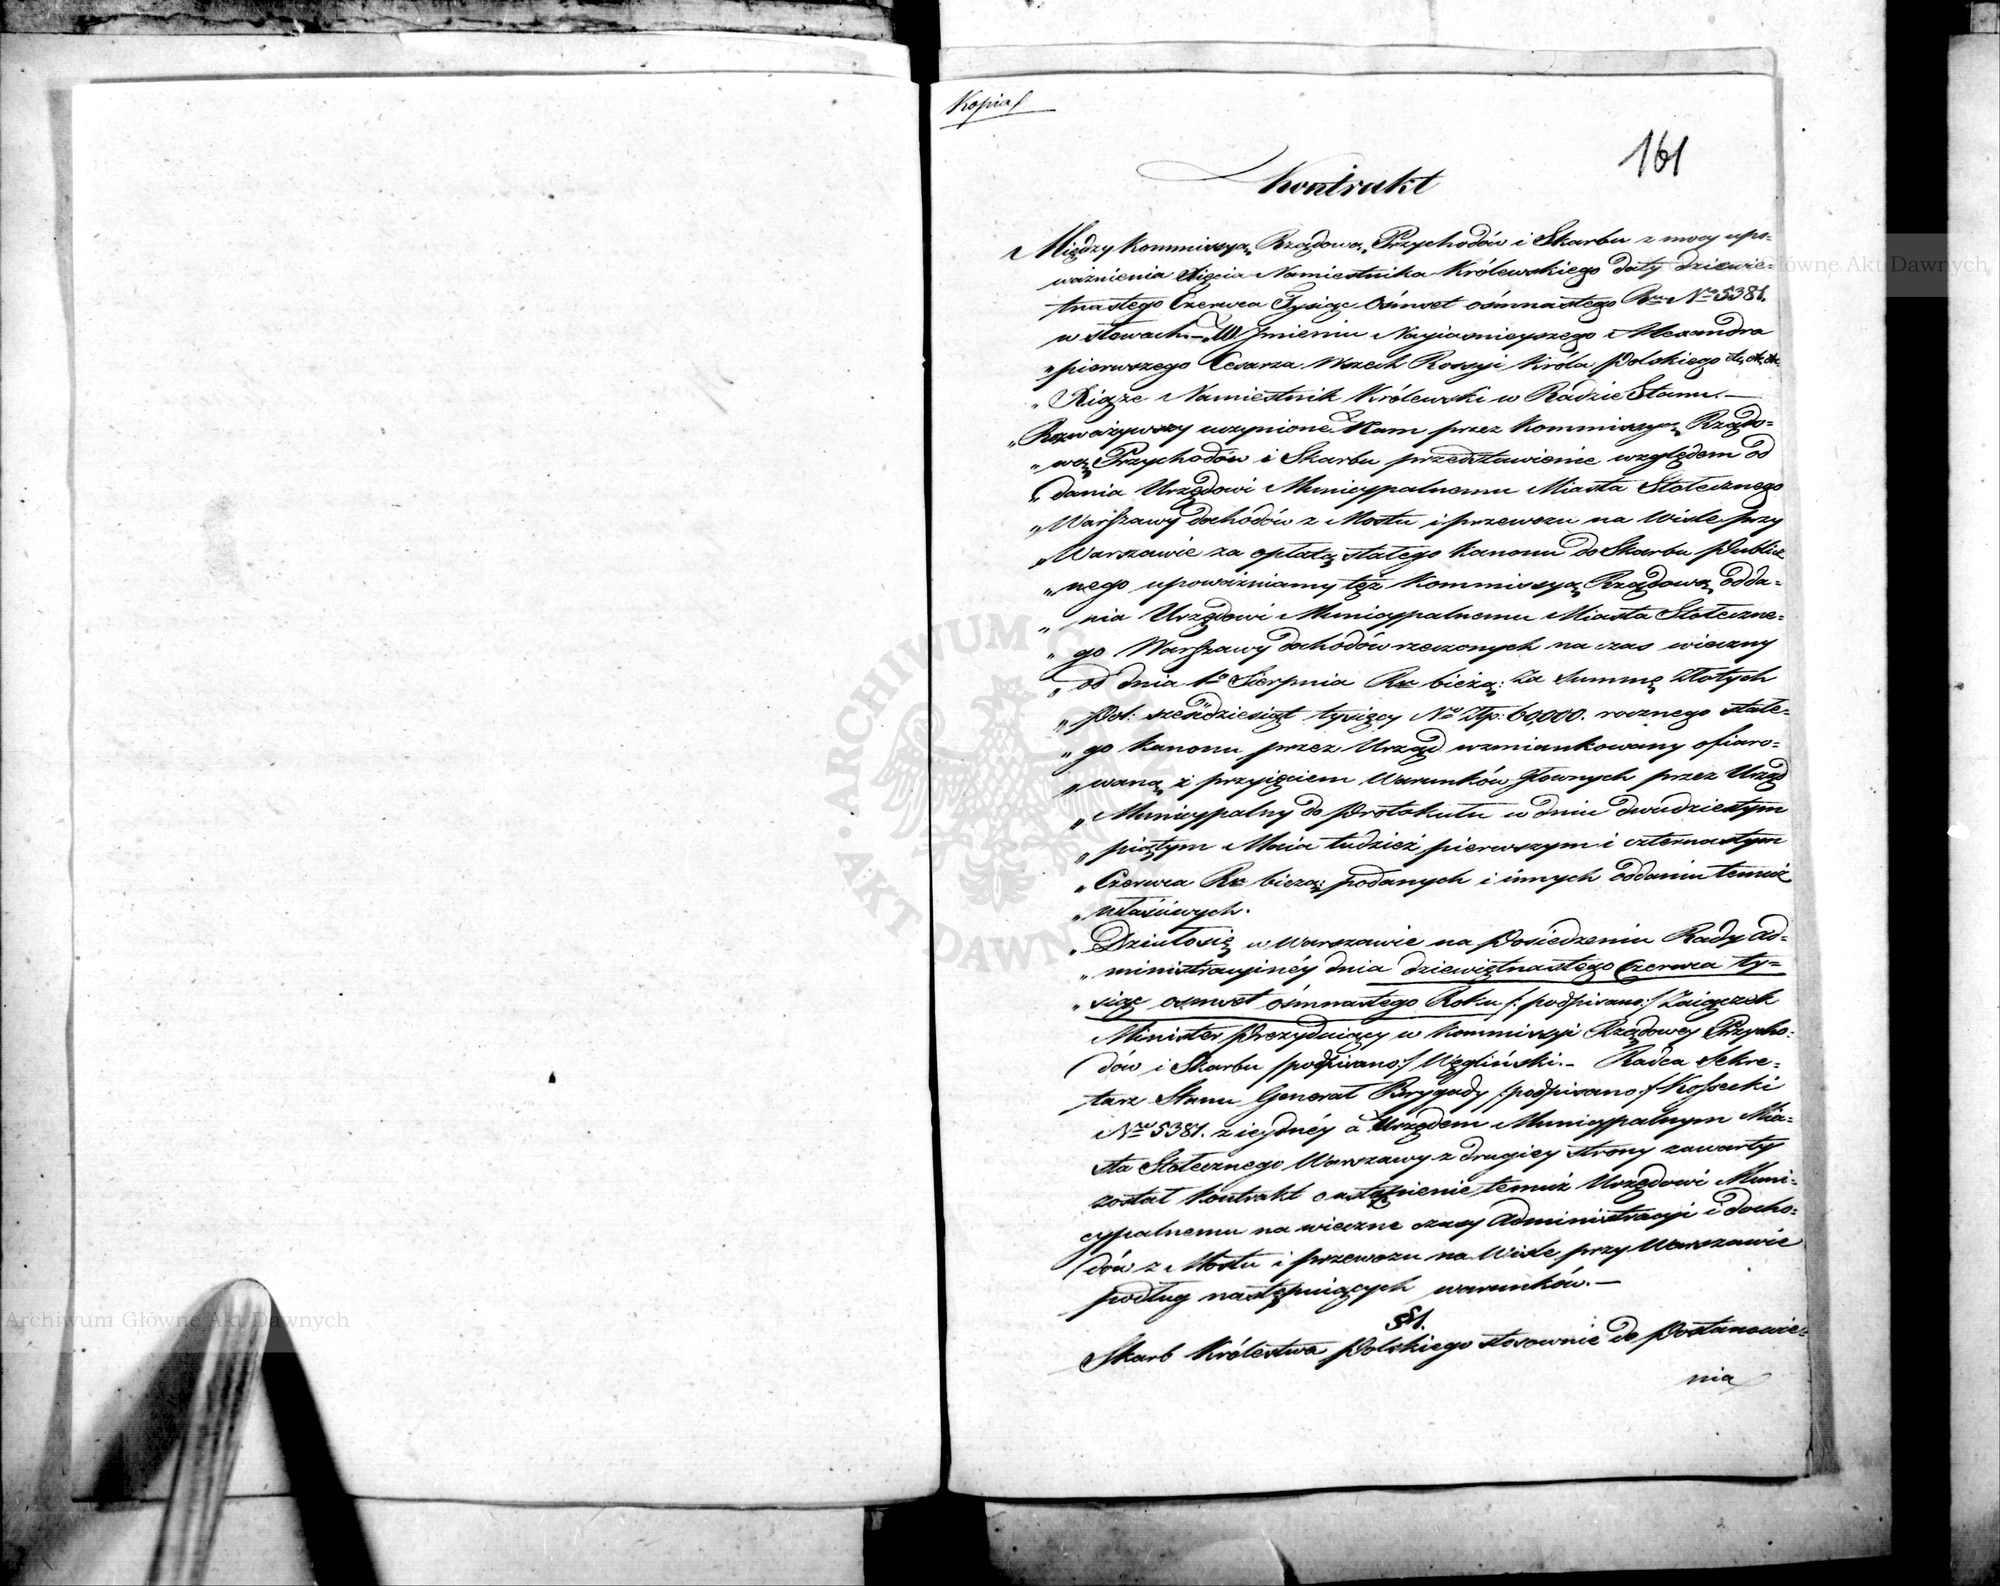 Kopia
161
Kontrakt
Między Kommissyą Rządową Przychodów i Skarbu z mocy upo-
ważnienia Xięcia Namiestnika Królewskiego daty dziewię-
tnastego Czerwca Tysiąc Ośmset ośmnastego Ru No 5381.
w słowach.— „W Imieniu Nayiasnieyszego Alexandra
„pierwszego Cesarza Wszech Rossyi Króla Polskiego &c, &c, &c
„Xiąże Namiestnik Królewski w Radzie Stanu.—
„Rozważywszy uczynione Nam przez Kommissyą Rządo-
„wą Przychodów i Skarbu przedstawienie względem od
„dania Urzędowi Municypalnemu Miasta Stołecznego
„Warszawy dochodów z Mostu i przewozu na Wisle przy
„Warszawie za opłatą stałego Kanonu do Skarbu Publicz
„nego upoważniamy też Kommissyą Rządową odda-
„nia Urzędowi Municypalnemu Miasta Stołeczne-
„go Warszawy dochodów rzeczonych na czas wieczny
„od dnia 1o Sierpnia Ru bieżą: za Summę Złotych
„Pol: sześćdziesiąt tysięcy No Złp: 60,000. rocznego stałe-
„go Kanonu przez Urząd wzmiankowany ofiaro-
„waną z przyięciem Warunków głownych przez Urząd
„Municypalny do Protokułu w dniu dwudziestym
„piątym Maia tudzież pierwszym i czternastym
„Czerwca Ru bieżą: podanych i innych oddaniu temuż
„właściwych.
„Działosię w Warszawie na Posiedzeniu Rady Ad-
„ministracyinéy dnia dziewiętnastego Czerwca ty-
„siąc ośmset ośmnastego Roku /: podpisano:/ Zaiączek
Minister Prezyduiący w Kommissyi Rządowey Przycho-
dów i Skarbu /podpisano:/ Węgliński.— Radca Sekre-
tarz Stanu Generał Brygady /:podpisano:/ Kossecki
No 5381. z iedynéy a Urzędem Municypalnym Mia-
sta Stołecznego Warszawy z drugiey strony zawarty
został Kontrakt o ustąpienie temuż Urzędowi Muni-
cypalnemu na wieczne czasy Administracyi i docho-
dów z Mostu i przewozu na Wisle przy Warszawie
podług następuiących warunków.—
§1.
Skarb Królestwa Polskiego stosownie do Postanowie-
nia